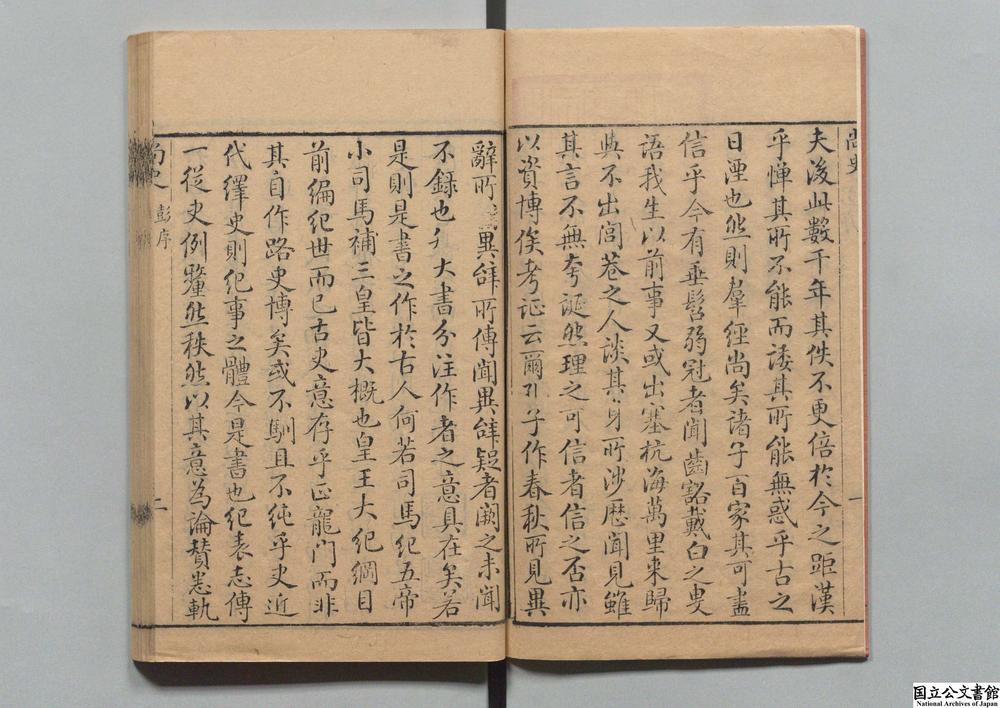 尚史
夫後此數千年其佚不更倍於今之距漢
乎憚其所不能而諉其所能無惑乎古之
日湮也然則羣經尚矣諸子百家其可盡
信乎今有垂髫弱冠者聞齒豁戴白之叟
語我生以前事又或出塞杭海萬里來歸
與不出閭巷之人談其身所涉歷聞見雖
其言不無夸誕然理之可信者信之否亦
以資博俟考证云爾孔子作春秋所見異
辭所聞異辭所傳聞異辭疑者闕之未聞
不錄也矧大書分注作者之意具在矣若
是則是書之作於古人何若司馬紀五帝
小司馬補三皇皆大概也皇王大紀綱目
前編紀世而已古史意存乎正龍門而非
其自作路史博矣或不馴且不純乎史近
代繹史則紀事之體今是書也紀表志傳
一從史例釐然秩然以其意為論贊悉軌
尚史 彭序
一
二
国立公文書館
National Archives of Japan